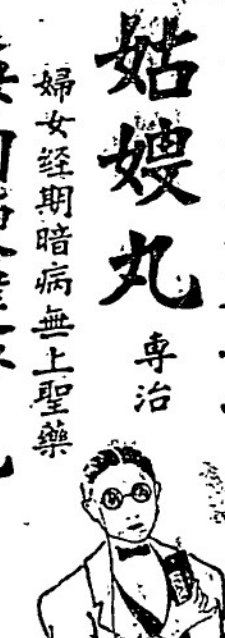 姑嫂丸
專治
婦女经期暗病無上聖藥